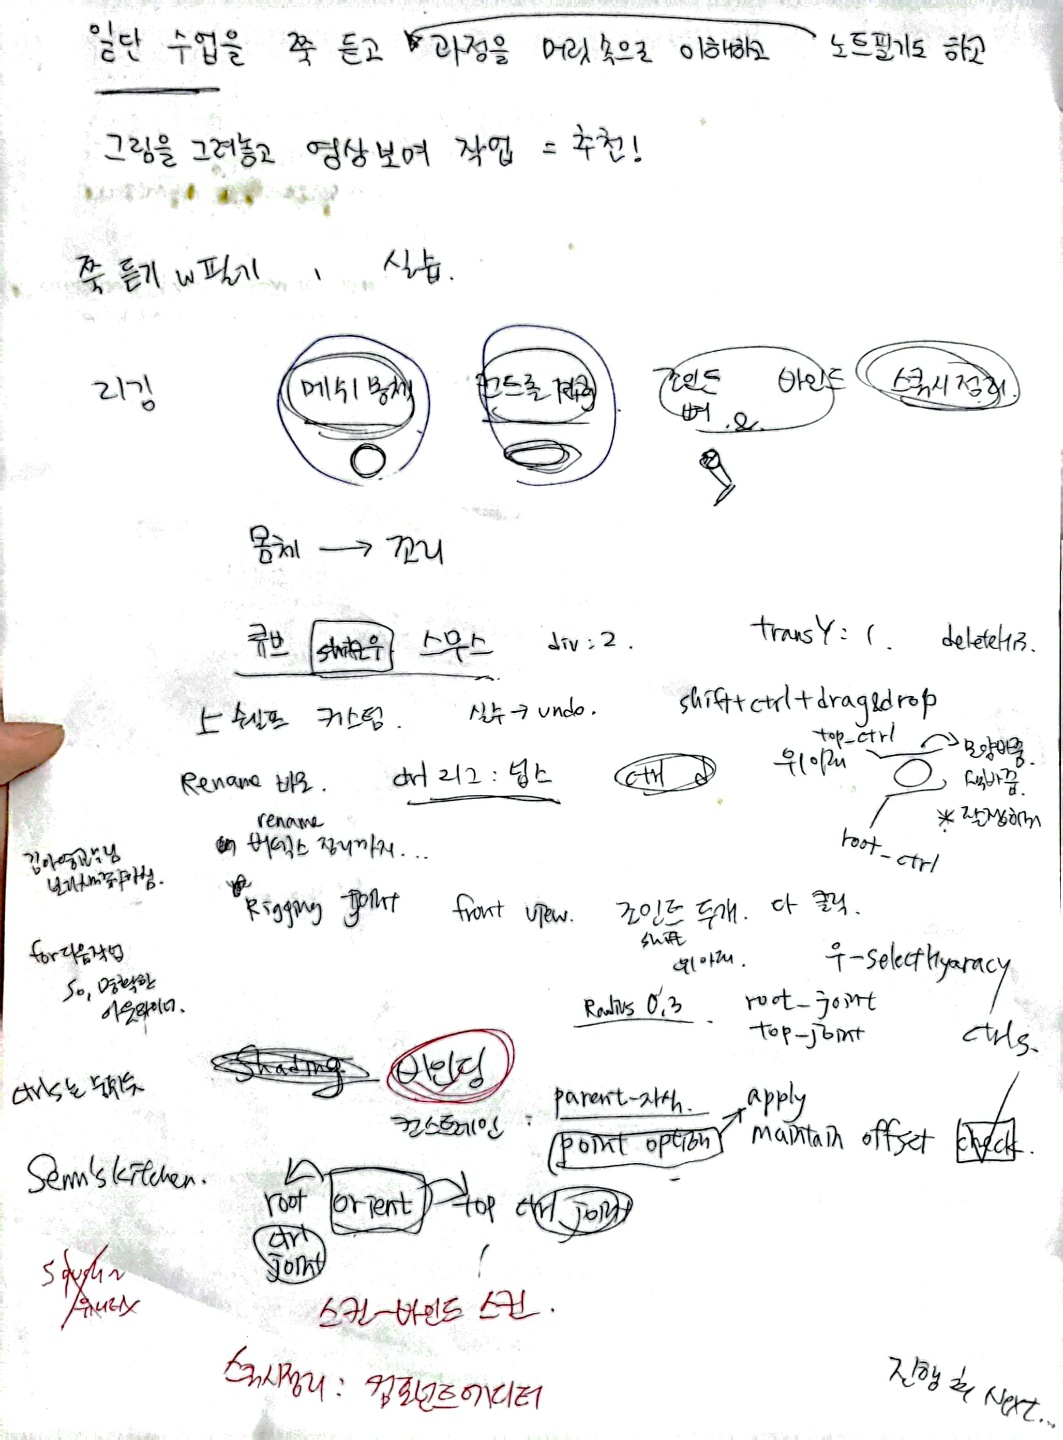 일단 수업을 쭉 듣고 과정을 머릿속으로 이해하고 노트필기도 하고
그림을 그려놓고 영상보며 작업 = 추천!
쭉 듣기 w 필기, 실습.
리깅 메쉬 몸체 컨트롤 조인트 바인드 스쿼시정리.
뼈 &
몸체 → 꼬리
큐브 shift우 스무스 div : 2. transY : 1. delete히.
ㄴ 쉘프 커스텀. 실수 → undo. shift+ctrl+drag&drop
Rename 바로. ctrl 리그 : 넙스 ctrl 위아래 top_ctrl 모양바꿈.
색바꿈.
rename
아웃라이너
root_ctrl
Rigging joint front view. 조인트 두개. 다 클릭.
shift
위아래.
for 다음작업
So, 명확한
아웃라이너.
우-select Hyaracy
Radius 0.3 root_joint
top-joint ctrls.
ctrls는
Shading 바인딩
컨스트레인 : parent-자식. apply
point option maintain offset check.
Senn's kitchen.
root orient top ctrl joint
ctrl
joint
스킨-바인드 스킨.
스쿼시정리 : 컴포넌트에디터
진행 후 Next...